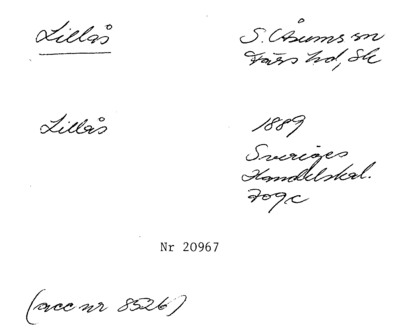 Lillås
S. Åsums sn
Färs hd, Sk
Lillås
1889
Sveriges
Handelskal.
709c
Nr 20967
(acc nr 8526)